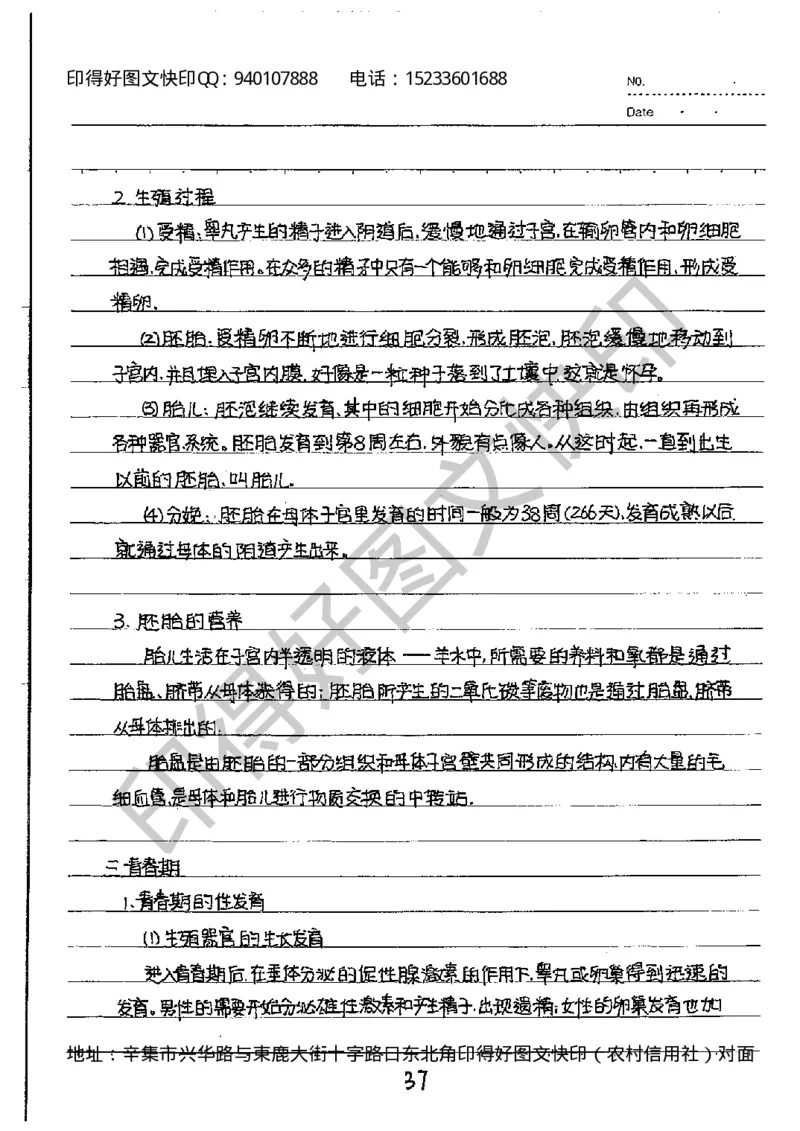 印得好图文快印QQ：940107888 电话：15233601688
NO.
Date
2. 生殖过程
(1)受精：睾丸产生的精子进入阴道后，缓慢地通过子宫，在输卵管内和卵细胞
相遇，完成受精作用。在众多的精子中只有一个能够和卵细胞完成受精作用，形成受
精卵。
(2)胚胎：受精卵不断地进行细胞分裂，形成胚泡，胚泡缓慢地移动到
子宫内，并且埋入子宫内膜，好像是一粒种子落到了土壤中，这就是怀孕。
(3)胎儿：胚泡继续发育，其中的细胞开始分化成各种组织，由组织再形成
各种器官系统。胚胎发育到第8周左右，外貌有点像人。从这时起，一直到出生
以前的胚胎，叫胎儿。
(4)分娩：胚胎在母体子宫里发育的时间一般为38周(266天)，发育成熟以后
就通过母体的阴道产生出来。
3. 胚胎的营养
胎儿生活在子宫内半透明的液体——羊水中，所需要的养料和氧都是通过
胎盘、脐带从母体获得的；胚胎所产生的二氧化碳等废物也是通过胎盘、脐带
从母体排出的。
胎盘是由胚胎的一部分组织和母体子宫壁共同形成的结构，内有大量的毛
细血管，是母体和胎儿进行物质交换的中转站。
三 青春期
1. 青春期的性发育
(1)生殖器官的生长发育
进入青春期后，在垂体分泌的促性腺激素的作用下，睾丸或卵巢得到迅速的
发育。男性的睾丸开始分泌雄性激素和产生精子，出现遗精；女性的卵巢发育也加
地址：辛集市兴华路与束鹿大街十字路口东北角印得好图文快印（农村信用社）对面
37
印得好图文快印